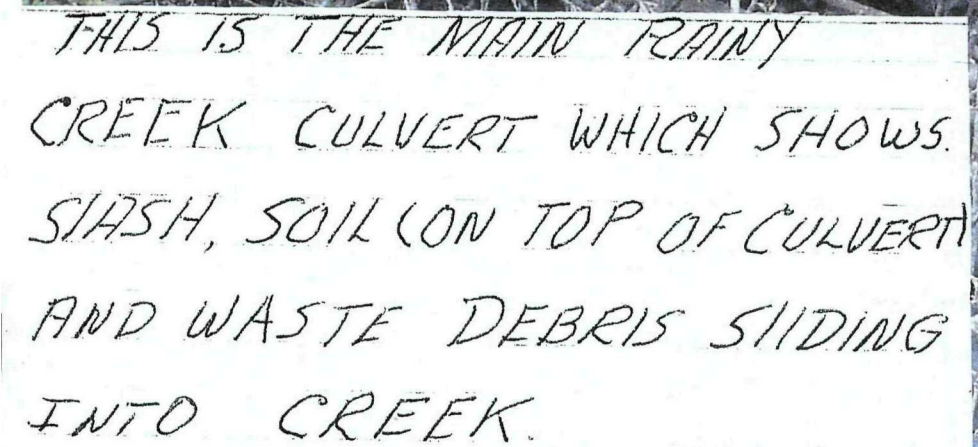 THIS IS THE MAIN RAINY
CREEK CULVERT WHICH SHOWS.
SLASH, SOIL (ON TOP OF CULVERT)
AND WASTE DEBRIS SLIDING
INTO CREEK.